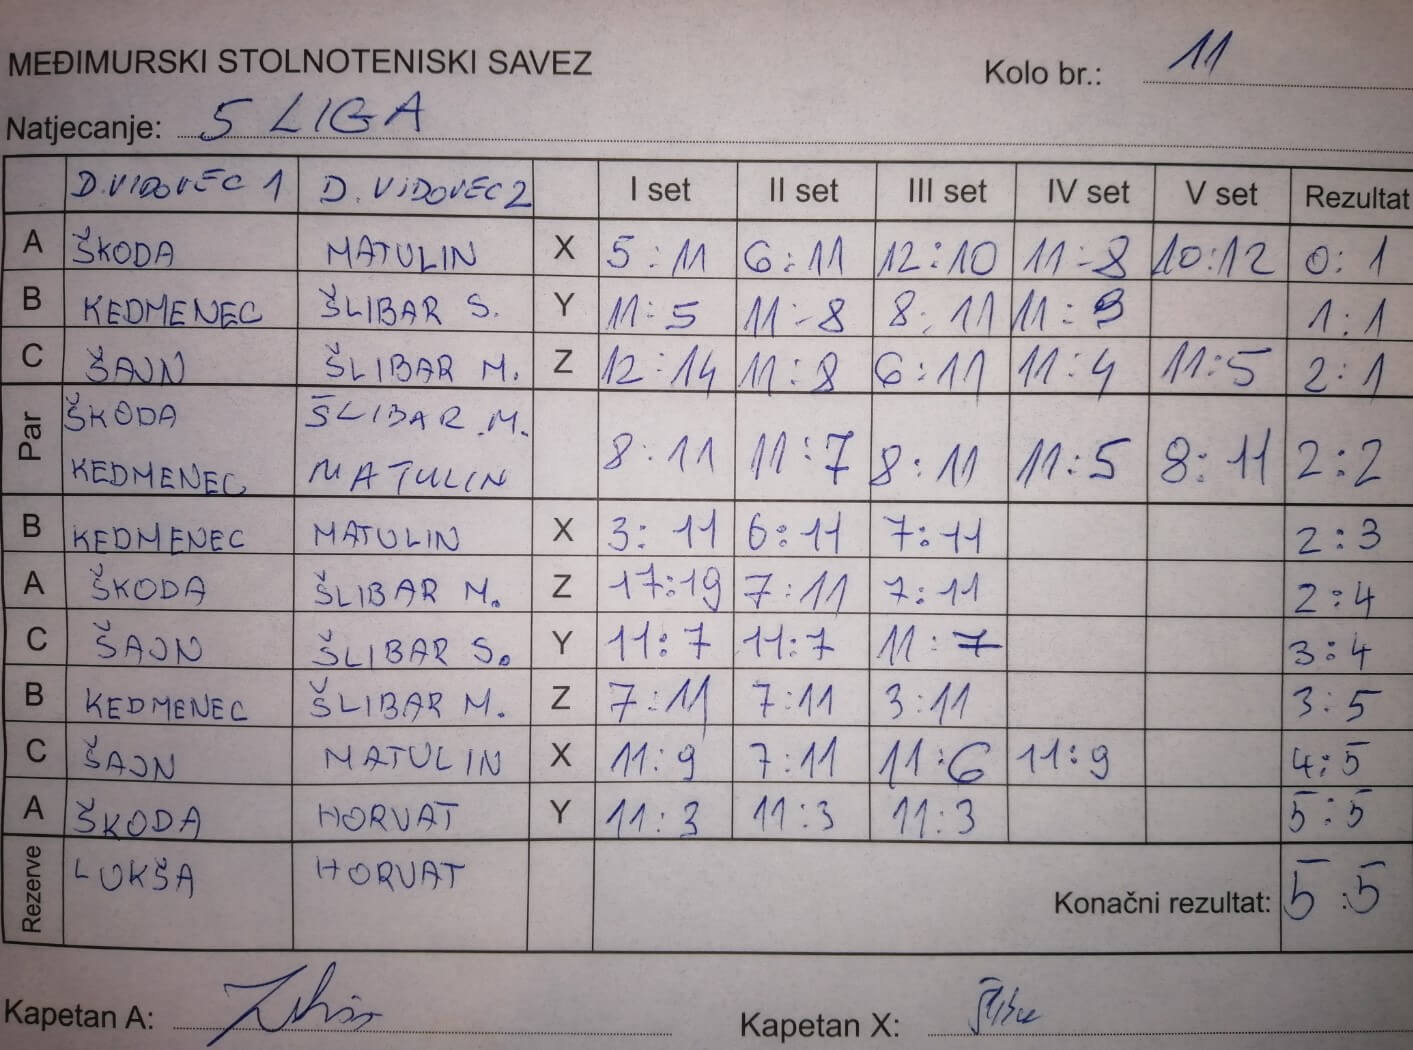 MEĐIMURSKI STOLNOTENISKI SAVEZ
Kolo br.: 11
Natjecanje: 5 LIGA
D. VIDOVEC 1 D. VIDOVEC 2 I set II set III set IV set V set Rezultat
A ŠKODA MATULIN X 5:11 6:11 12:10 11-8 10:12 0:1
B KEDMENEC ŠLIBAR S. Y 11:5 11-8 8:11 11:9 1:1
C ŠAJN ŠLIBAR M. Z 12:14 11:8 6:11 11:4 11:5 2:1
Par ŠKODA ŠLIBAR M.
KEDMENEC MATULIN 8:11 11:7 8:11 11:5 8:11 2:2
B KEDMENEC MATULIN X 3:11 6:11 7:11 2:3
A ŠKODA ŠLIBAR M. Z 17:19 7:11 7:11 2:4
C ŠAJN ŠLIBAR S. Y 11:7 11:7 11:7 3:4
B KEDMENEC ŠLIBAR M. Z 7:11 7:11 3:11 3:5
C ŠAJN MATULIN X 11:9 7:11 11:6 11:9 4:5
A ŠKODA HORVAT Y 11:3 11:3 11:3 5:5
Rezerve LUKŠA HORVAT
Konačni rezultat: 5:5
Kapetan A:
Kapetan X: